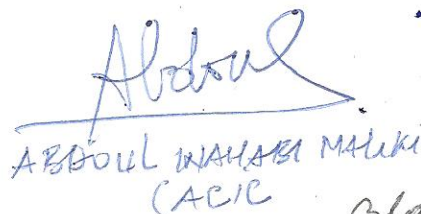 Abdoul
ABDOUL WAHABI MALIKI
CACIC